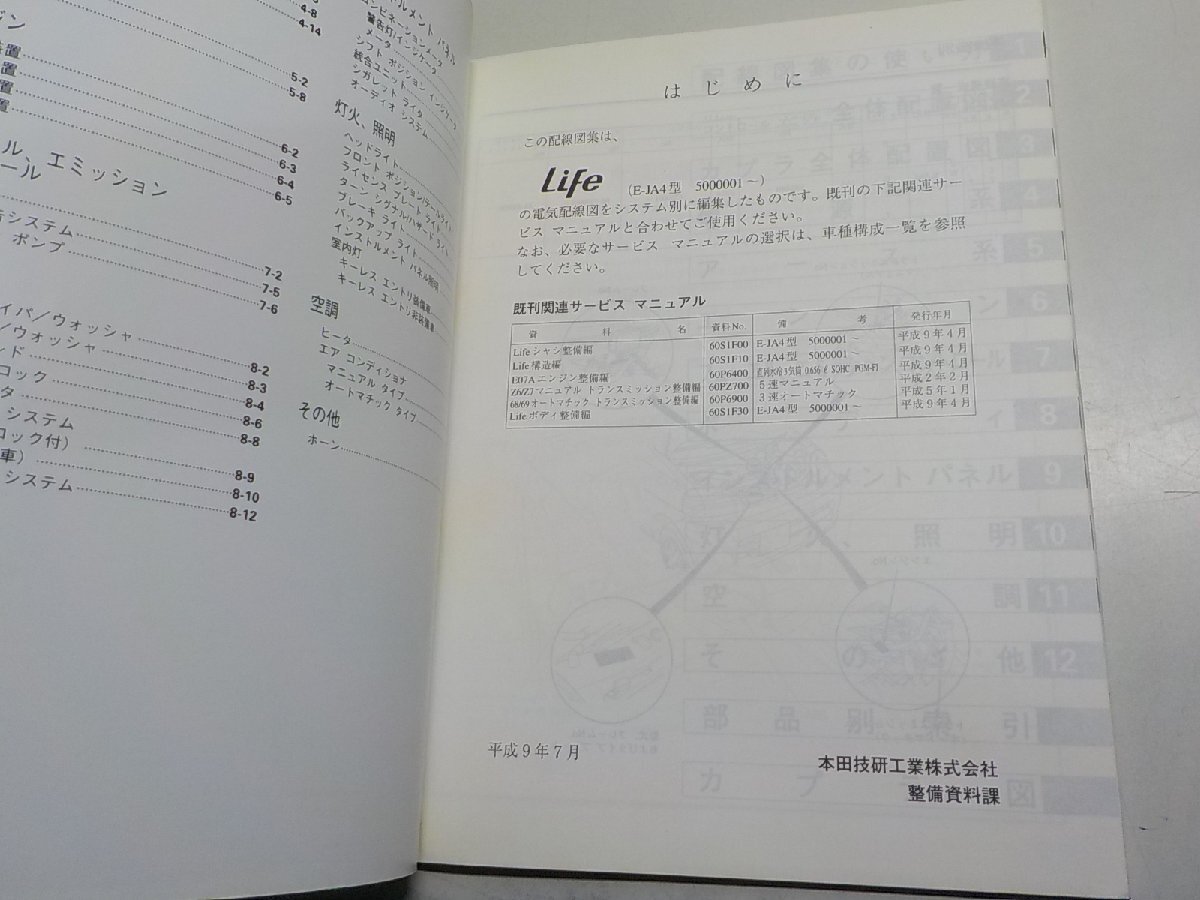 4-8
4-14
ジン
5-2
5-8
6-2
6-3
6-4
6-5
ル、エミッション
ール
システム
ポンプ
7-2
7-5
7-6
イパ/ウォッシャ
/ウォッシャ
8-2
8-3
ロック
8-4
8-6
システム
8-8
ロック付)
8-9
車)
8-10
システム
8-12
コンビネーション メータ
警告灯/インジケータ
メータ
シフト ポジション インジケータ
統合ユニット
シガレット ライタ
オーディオ システム
灯火、照明
ヘッドライト
フロント ポジション/テールライト
ライセンス プレート ライト
ターン シグナル/ハザード ライト
ブレーキ ライト
バックアップ ライト
インストルメント パネル照明
室内灯
キーレス エントリ装備車
キーレス エントリ非装備車
空調
ヒータ
エア コンディショナ
マニュアル タイプ
オートマチック タイプ
その他
ホーン
はじめに
この配線図集は、
Life (E-JA4型 5000001~)
の電気配線図をシステム別に編集したものです。既刊の下記関連サー
ビス マニュアルと合わせてご使用ください。
なお、必要なサービス マニュアルの選択は、車種構成一覧を参照
してください。
既刊関連サービス マニュアル
資料名 資料No. 備考 発行年月
Lifeシャシ整備編 60S1F00 E-JA4型 5000001~ 平成9年4月
Life構造編 60S1F10 E-JA4型 5000001~ 平成9年4月
E07Aエンジン整備編 60P6400 直列水冷3気筒 0.656ℓ SOHC PGM-FI 平成9年4月
Z6/Z7マニュアル トランスミッション整備編 60PZ700 5速マニュアル 平成2年2月
68/69オートマチック トランスミッション整備編 60P6900 3速オートマチック 平成5年1月
Lifeボディ整備編 60S1F30 E-JA4型 5000001~ 平成9年4月
平成9年7月
本田技研工業株式会社
整備資料課